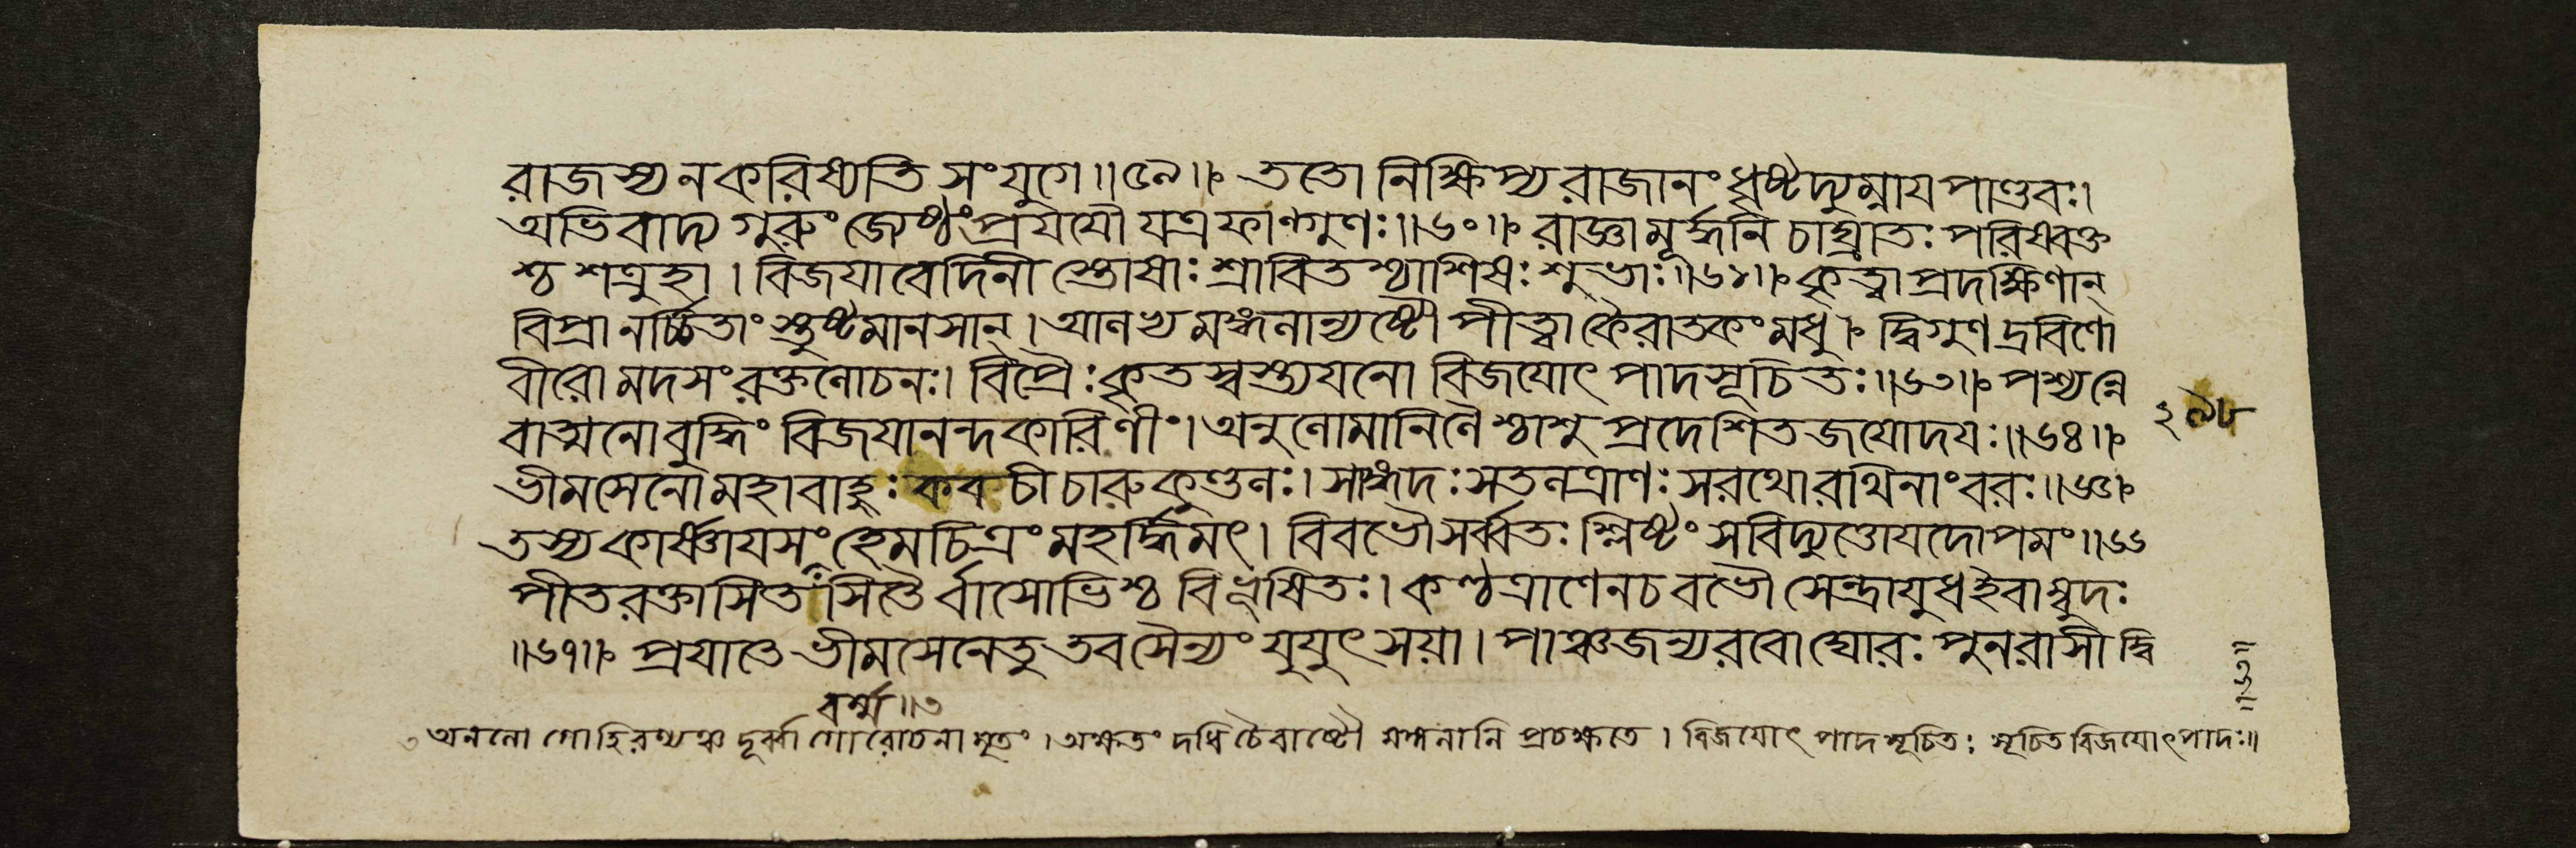 রাজস্য ন করিষ্যতি সংযুগে॥৫৯॥ ততো নিক্ষিপ্য রাজানং ধৃষ্টদ্যুম্নায পাণ্ডবঃ।
অভিবাদ্য গুরুং জেষ্ঠং প্রযযৌ যত্র ফাল্গুণঃ॥৬০॥ রাজ্ঞা মূর্দ্ধনি চাঘ্রাতঃ পরিষ্বক্ত
শ্চ শত্রুহা। বিজযাবেদিনী স্তোষাঃ শ্রাবিত শ্চাশিষঃ শুভাঃ॥৬১॥ কৃত্বা প্রদক্ষিণান্
বিপ্রানর্চ্চিতাংস্তুষ্টমানসান্। আলভ্য মঙ্গলান্যষ্টৌ পীত্বা কৈরাতকং মধু। দ্বিগুণদ্রবিণো
বীরো মদসংরক্তলোচনঃ। বিপ্রৈঃ কৃতস্বস্ত্যযনো বিজযোৎপাদসূচিতঃ॥৬৩॥ পশ্যন্নে
বাত্মনো বুদ্ধিং বিজযানন্দকারিণীং। অনুলোমানিলৈশ্চাশু প্রদেশিতজযোদযঃ॥৬৪॥
২৯৮
ভীমসেনো মহাবাহুঃ কবচী চারুকুণ্ডলঃ। সাঙ্গদঃ সতলত্রাণঃ সরথো রথিনাং বরঃ॥৬৫॥
তস্য কার্ষ্ণাযসং হেমচিত্রং মহর্দ্ধিমৎ। বিবভৌ সর্ব্বতঃ শ্লিষ্টং সবিদ্যুত্তোযদোপমং॥৬৬
পীতরক্তাসিতসিতৈর্বাসোভিশ্চ বিভূষিতঃ। কণ্ঠত্রাণেন চ বভৌ সেন্দ্রাযুধ ইবাম্বুদঃ
॥৬৭॥ প্রযাতে ভীমসেনে তু তব সৈন্যং যুযুৎসযা। পাঞ্চজন্যরবো ঘোরঃ পুনরাসীদ্বি
বর্ম্ম॥৩
৩ অনলো গোহিরণ্যঞ্চ দূর্ব্বাগোরোচনামৃতং। অক্ষতং দধি চৈবাষ্টৌ মঙ্গলানি প্রচক্ষতে। বিজযোৎপাদসূচিতঃ সূচিতবিজযোৎপাদঃ॥